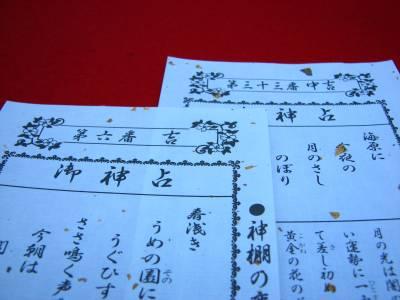 第六番 吉
御神占
春浅き
うめの園に
うぐひす
ささ鳴く声
今朝は
●神棚の
第三十三番 中吉
神占
海原に
今夜の
月のさし
のぼり
月の光は
い運勢に一
て差し初め
黄金の花の